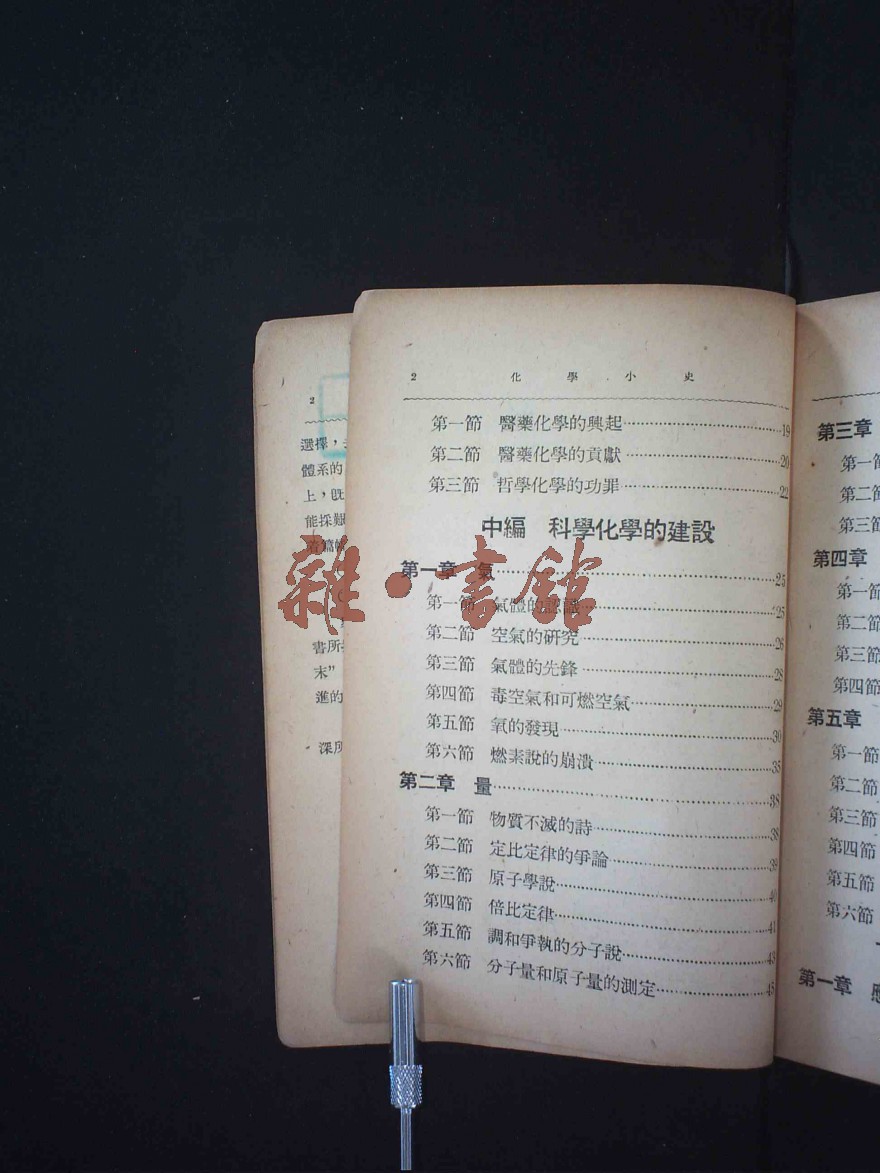 2 化學小史
第一節 醫藥化學的興起 19
第二節 醫藥化學的貢獻 20
第三節 哲學化學的功罪 22
中編 科學化學的建設
第一章 氣 25
第一節 氣體的認識 25
第二節 空氣的研究 26
第三節 氣體的先鋒 28
第四節 毒空氣和可燃空氣 29
第五節 氧的發現 30
第六節 燃素說的崩潰 35
第二章 量 38
第一節 物質不滅的詩 38
第二節 定比定律的爭論 39
第三節 原子學說 40
第四節 倍比定律 41
第五節 調和爭執的分子說 43
第六節 分子量和原子量的測定 45
雜·書館
2
選擇，
體系的
上，旣
能採
書所
末”
進的
深所
第三章
第一節
第二節
第三節
第四章
第一節
第二節
第三節
第四節
第五章
第一節
第二節
第三節
第四節
第五節
第六節
第一章 應